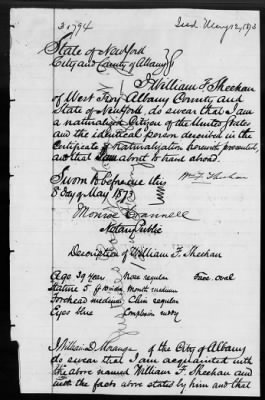 30794
Iss'd May 12, 1873
State of New York
City and County of Albany
I William F Sheehan
of West Troy Albany County and
State of New York, do swear that I am
a naturalized Citizen of the United States
and the identical person described in the
Certificate of Naturalization herewith presented,
and that I am about to travel abroad.
Sworn to before me this
8 day of May 1873
Wm F Sheehan
Monroe Crannell
Notary Public
Description of William F. Sheehan
Age 39 years Nose regular Face oval
Stature 5 ft inches Mouth medium
Forehead medium Chin regular
Eyes blue Complexion ruddy
I William D. of the City of Albany
do swear that I am acquainted with
the above named William F. Sheehan and
with the facts above stated by him and that